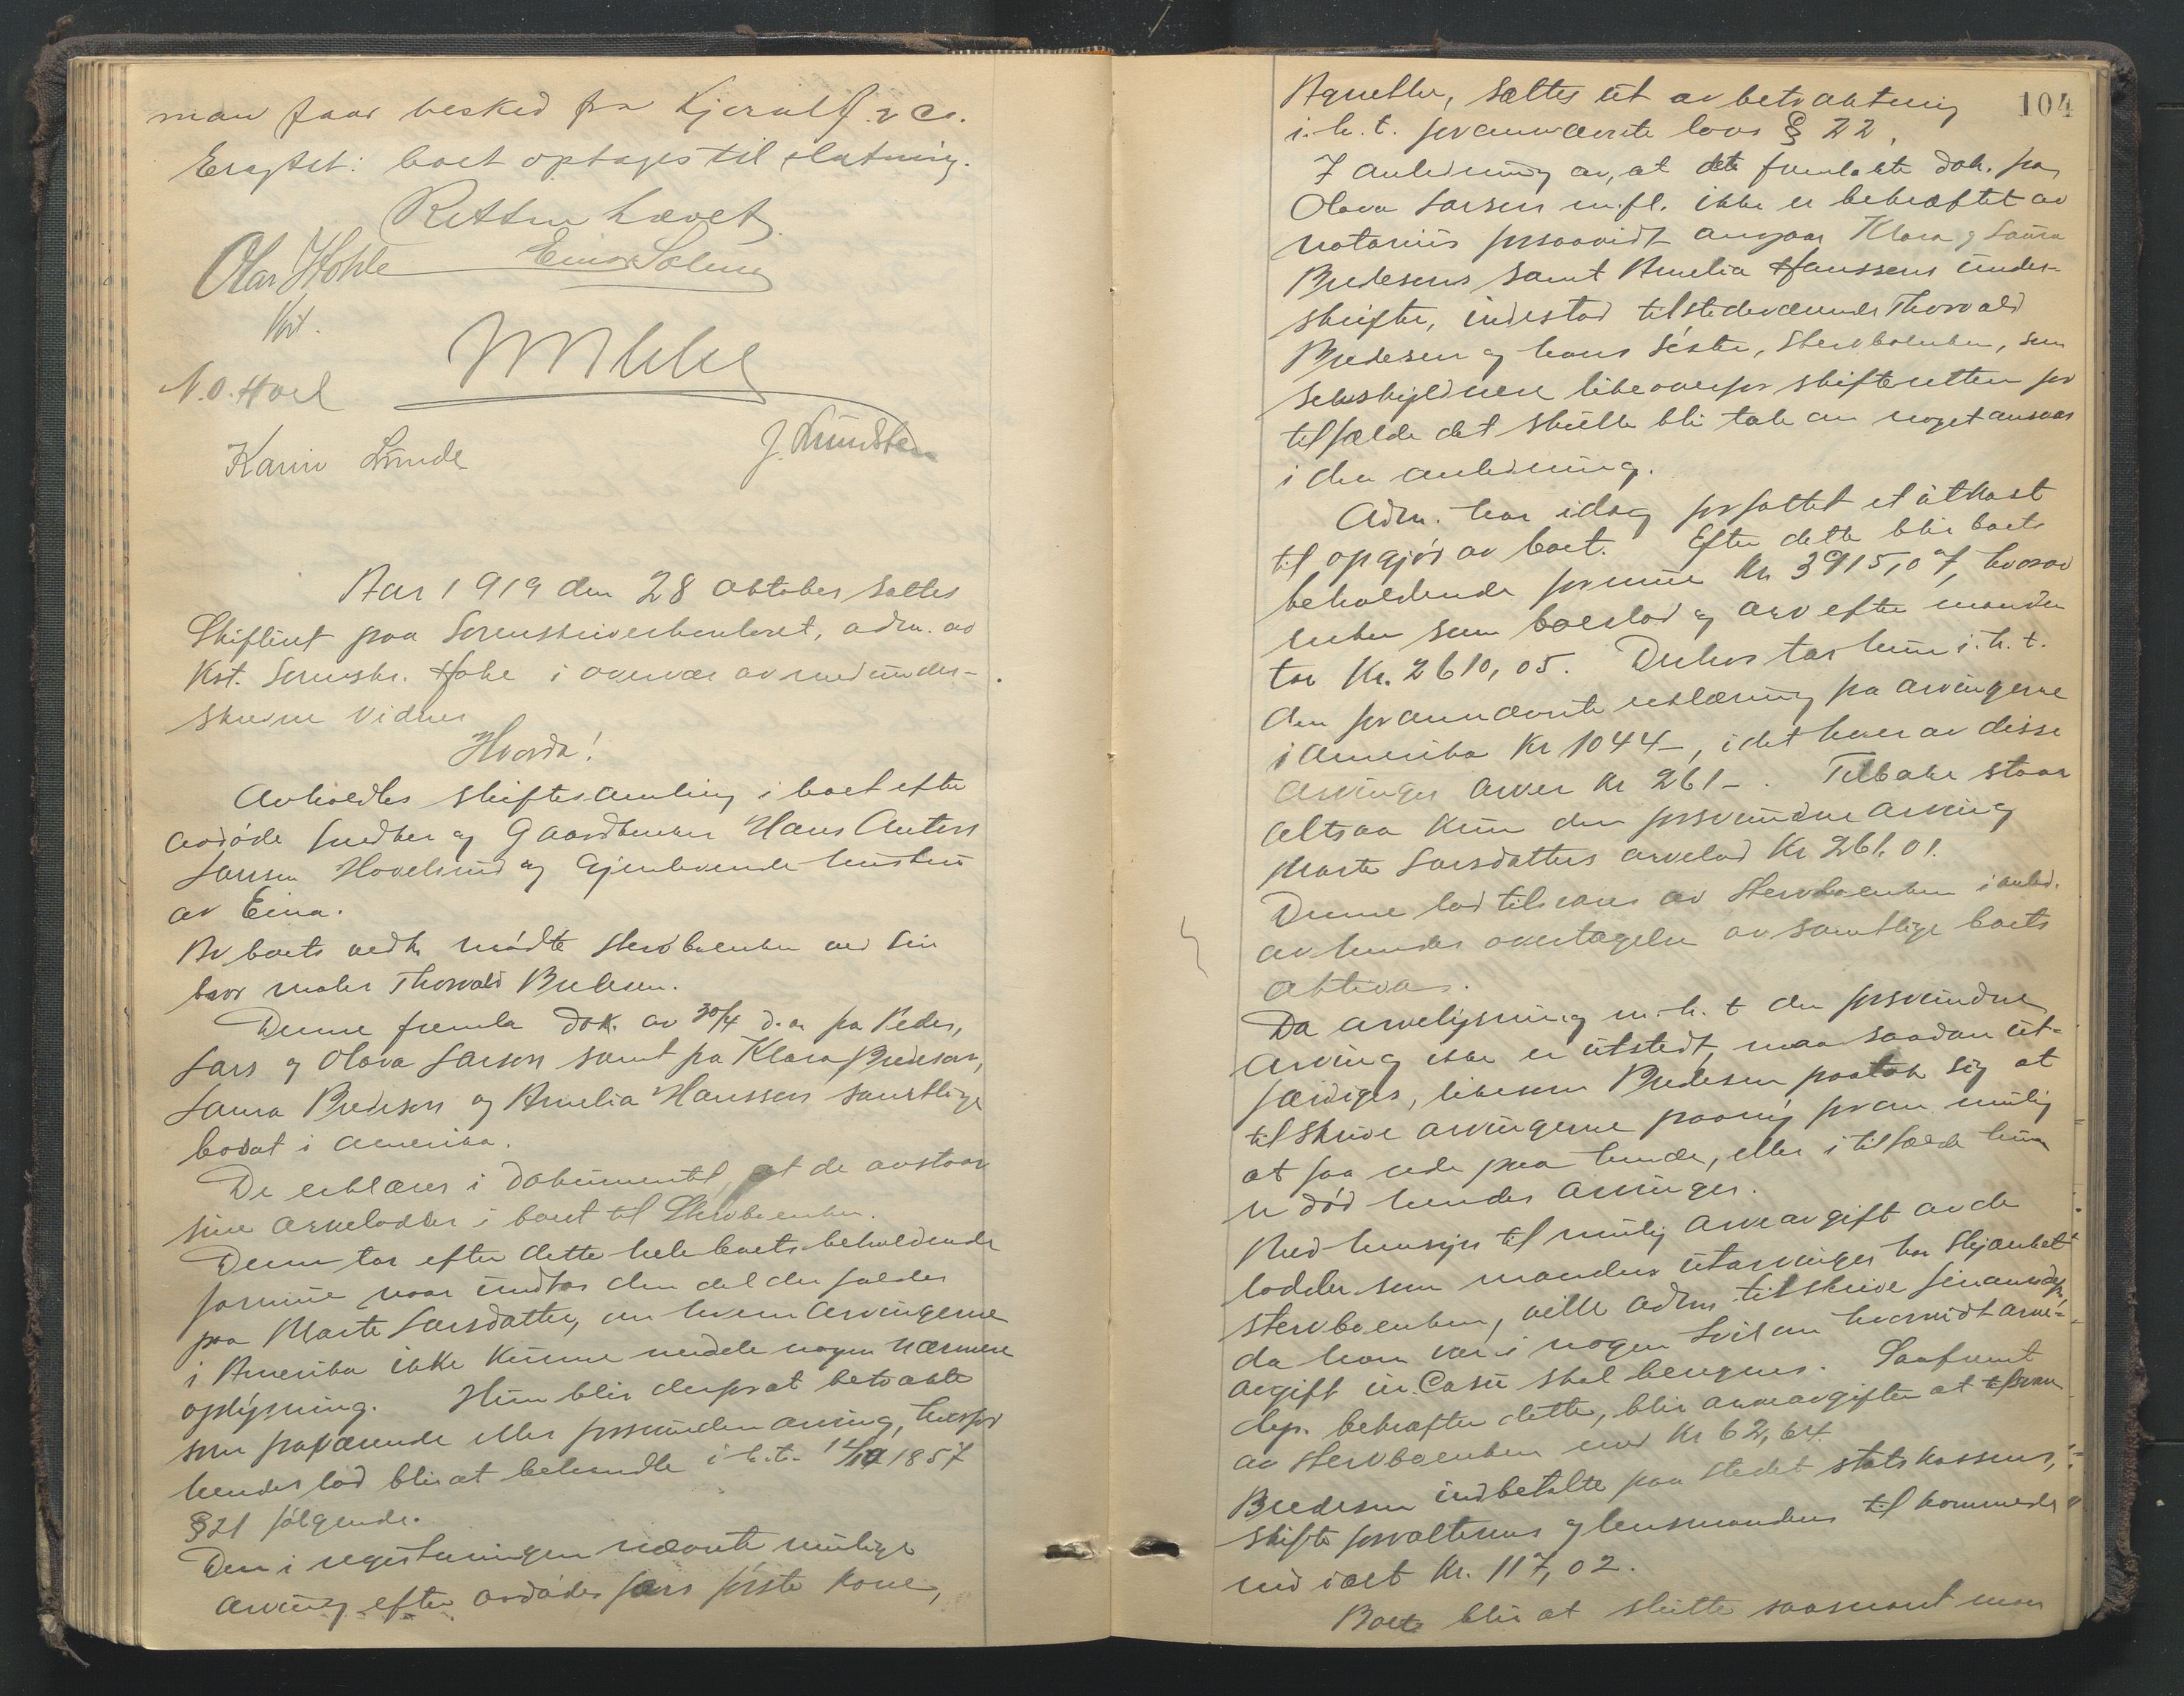 man faar besked fra Kjerulf & Co.
Eragtet: boet optages til slutning.
Retten hævet
Olav Hohle Einar Solung
Kst.
N. O. Hoel
Karin Lunde J. Lundsten
Aar 1919 den 28 oktober sattes
Skifteret paa Sorenskriverkontoret, adm. av
Kst. Sorenskr. Hohle i overvær av medunder-
skrevne vidner
Hvorda!
Avholdtes skiftesamling i boet efter
avdøde snedker og Gaardbruker Hans Anton
Larsen Hovelsrud og gjenlevende hustru
av Eina.
Av boets vedk. mødte Stervboenken ved sin
bror maler Thorvald Bredesen.
Denne fremla dok. av 30/4 d.a. fra Peder,
Lars og Olava Larson samt fra Klara Bredeson,
Laura Bredeson og Amelia Hansson samtlige
bosat i Amerika.
De erklærer i dokumentet, at de avstaar
sine arvelodder i boet til Stervboenken.
Denne tar efter dette hele boets beholdende
formue naar undtas den del der falder
paa Marte Larsdatter, om hvem arvingerne
i Amerika ikke kunne meddele nogen nærmere
oplysning. Hun blir derfor at betragte
som fraværende eller forsvunden arving, hvorfor
hendes lod blir at behandle i h.t. 12/10 1857
§ 21 følgende.
Den i registreringen nævnte mulige
arving efter avdødes fars første kone,
104
Agnethe, sættes ut av betraktning
i. h. t. forannævnte lovs § 22.
I anledning av, at det fremlagte dok. fra
Olava Larsen m.fl. ikke er bekræftet av
notarius forsaavidt angaar Klara og Laura
Bredesens samt Amelia Hanssens under-
skrifter, indestod tilstedeværende Thorvald
Bredesen og hans søster, Stervboenken, som
selvskyldnere likeoverfor skifteretten for
tilfælde det skulle bli tale om noget ansvar
i den anledning.
Adm. har idag forfattet et utkast
til opgjør av boet. Efter dette blir boets
beholdende formue Kr 3915,07, hvorav
enken som boeslod og arv efter manden
tar Kr. 2610,05. Derhos tar hun i. h. t.
den forannævnte erklæring fra arvingerne
i Amerika Kr 1044-, idet hver av disse
arvinger arver Kr 261-. Tilbake staar
altsaa kun den forsvundne arving
Marte Larsdatters arvelod Kr 261.01.
Denne lod tilsvares av Stervboenken i anled.
av hendes overtagelse av samtlige boets
aktiva.
Da arvelysning m. h. t den forsvundne
arving ikke er utstedt, maa saadan ut-
færdiges, likesom Bredesen paatok sig at
tilskrive arvingerne paany for om mulig
at faa rede paa hende, eller i tilfælde hun
er død hendes arvinger.
Med hensyn til mulig arveavgift av de
lodder som mandens utarvinger har skjænket
stervboenken, ville adm. tilskrive finansdep.,
da han var i nogen tvil om hvorvidt arve-
avgift in casu skal beregnes. Saafremt
dep. bekræfter dette, blir arveavgiften at tilsvare
av stervboenken med Kr 62,64.
Bredesen indbetalte paa stedet statskassens,
skifteforvalterens og lensmandens tilkommende
med ialt Kr. 117,02.
Boet blir at slutte saasnart man